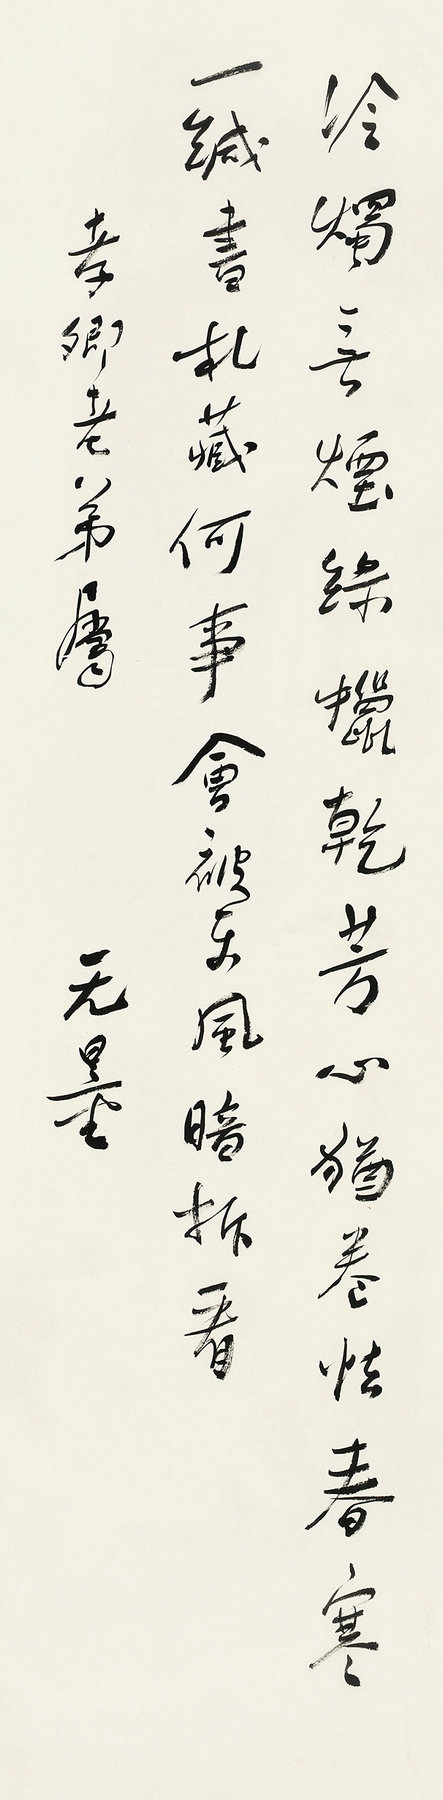 冷燭無煙綠蠟乾芳心猶卷怯春寒
一緘書札藏何事會被東風暗拆看
孝卿老弟屬
无量